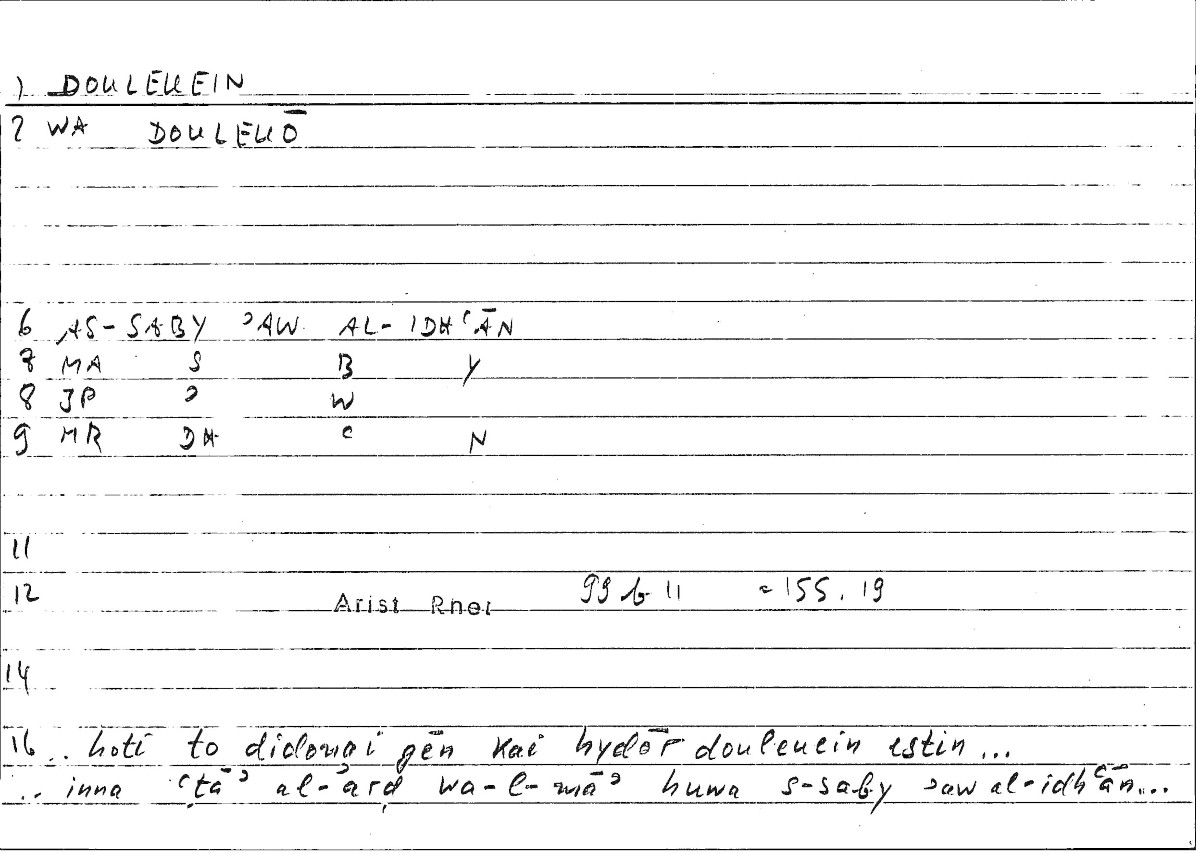 1 DOULEUEIN
2 WA DOULEUŌ
6 AS-SABY ʾAW AL-IDHʿĀN
7 MA S B Y
8 JP ʾ W
9 MR DH ʿ N
11
12 Arist Rhet 99 b 11 = 155.19
14
16 .. hoti to didonai gēn kai hydōr douleuein estin...
.. inna ʿṭāʾ al-ʾarḍ wa-l-māʾ huwa s-saby ʾaw al-idhʿān...